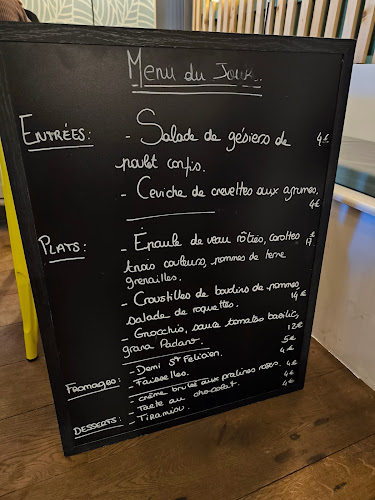 Menu du Jour.
ENTRÉES: - Salade de gésiers de 4€
poulet confis.
- Ceviche de crevettes aux agrumes.
4€
PLATS: - Épaule de veau rôties, carottes 17€
trois couleurs, pommes de terre
grenailles.
- Croustilles de boudins de pommes, 14€
salade de roquettes.
- Gnocchis, sauce tomates basilic, 12€
grana Padano.
FROMAGES: - Demi St Félicien. 5€
- Faisselles. 4€
DESSERTS: - crème brulée aux pralines roses. 4€
- Tarte au chocolat. 4€
- Tiramisu. 4€